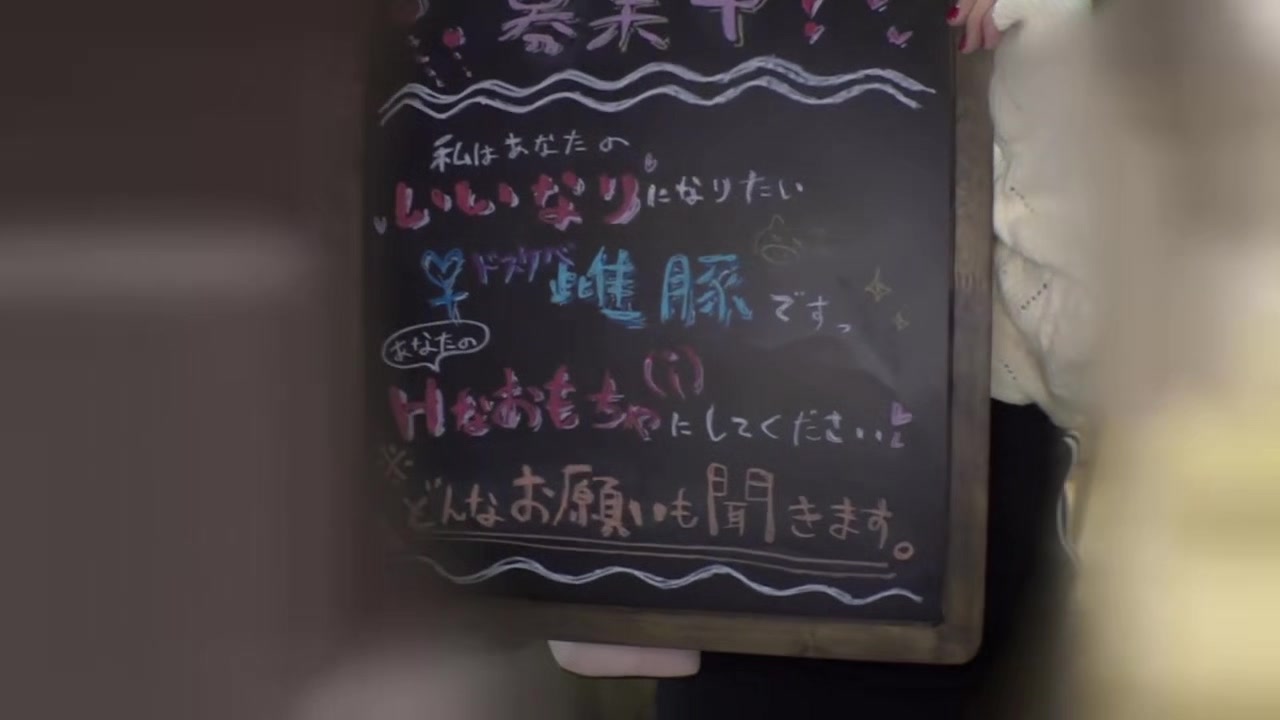 募集中!
私はあなたの
いいなりになりたい
ドスケベ雌豚です。
あなたの
Hなおもちゃにしてください
※
どんなお願いも聞きます。